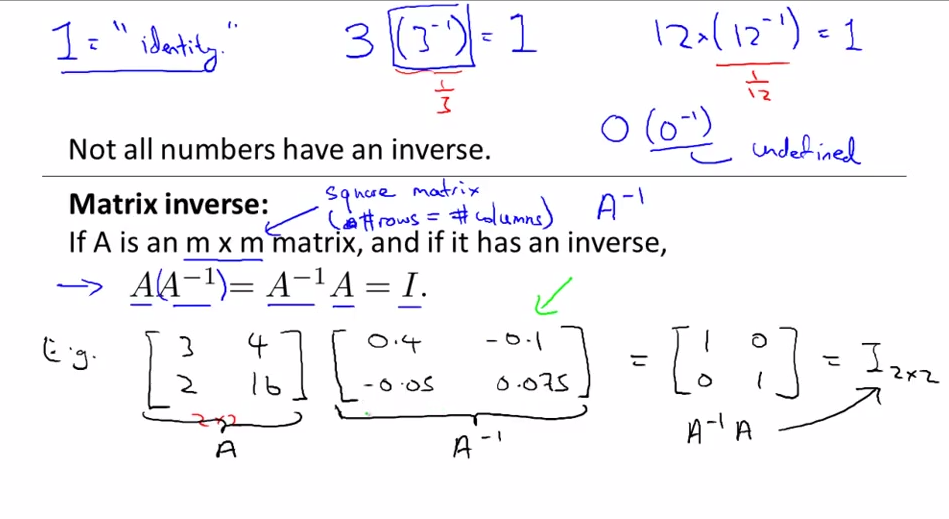 1 = "identity."   3 (3⁻¹) = 1   12×(12⁻¹) = 1
1/3   1/12
0 (0⁻¹)
undefined
Not all numbers have an inverse.
square matrix
Matrix inverse:   (#rows = #columns)   A⁻¹
If A is an m x m matrix, and if it has an inverse,
→ A(A⁻¹) = A⁻¹A = I.
E.g. [3 4; 2 16] [0.4 -0.1; -0.05 0.075] = [1 0; 0 1] = I₂ₓ₂
2×2
A   A⁻¹   A⁻¹A